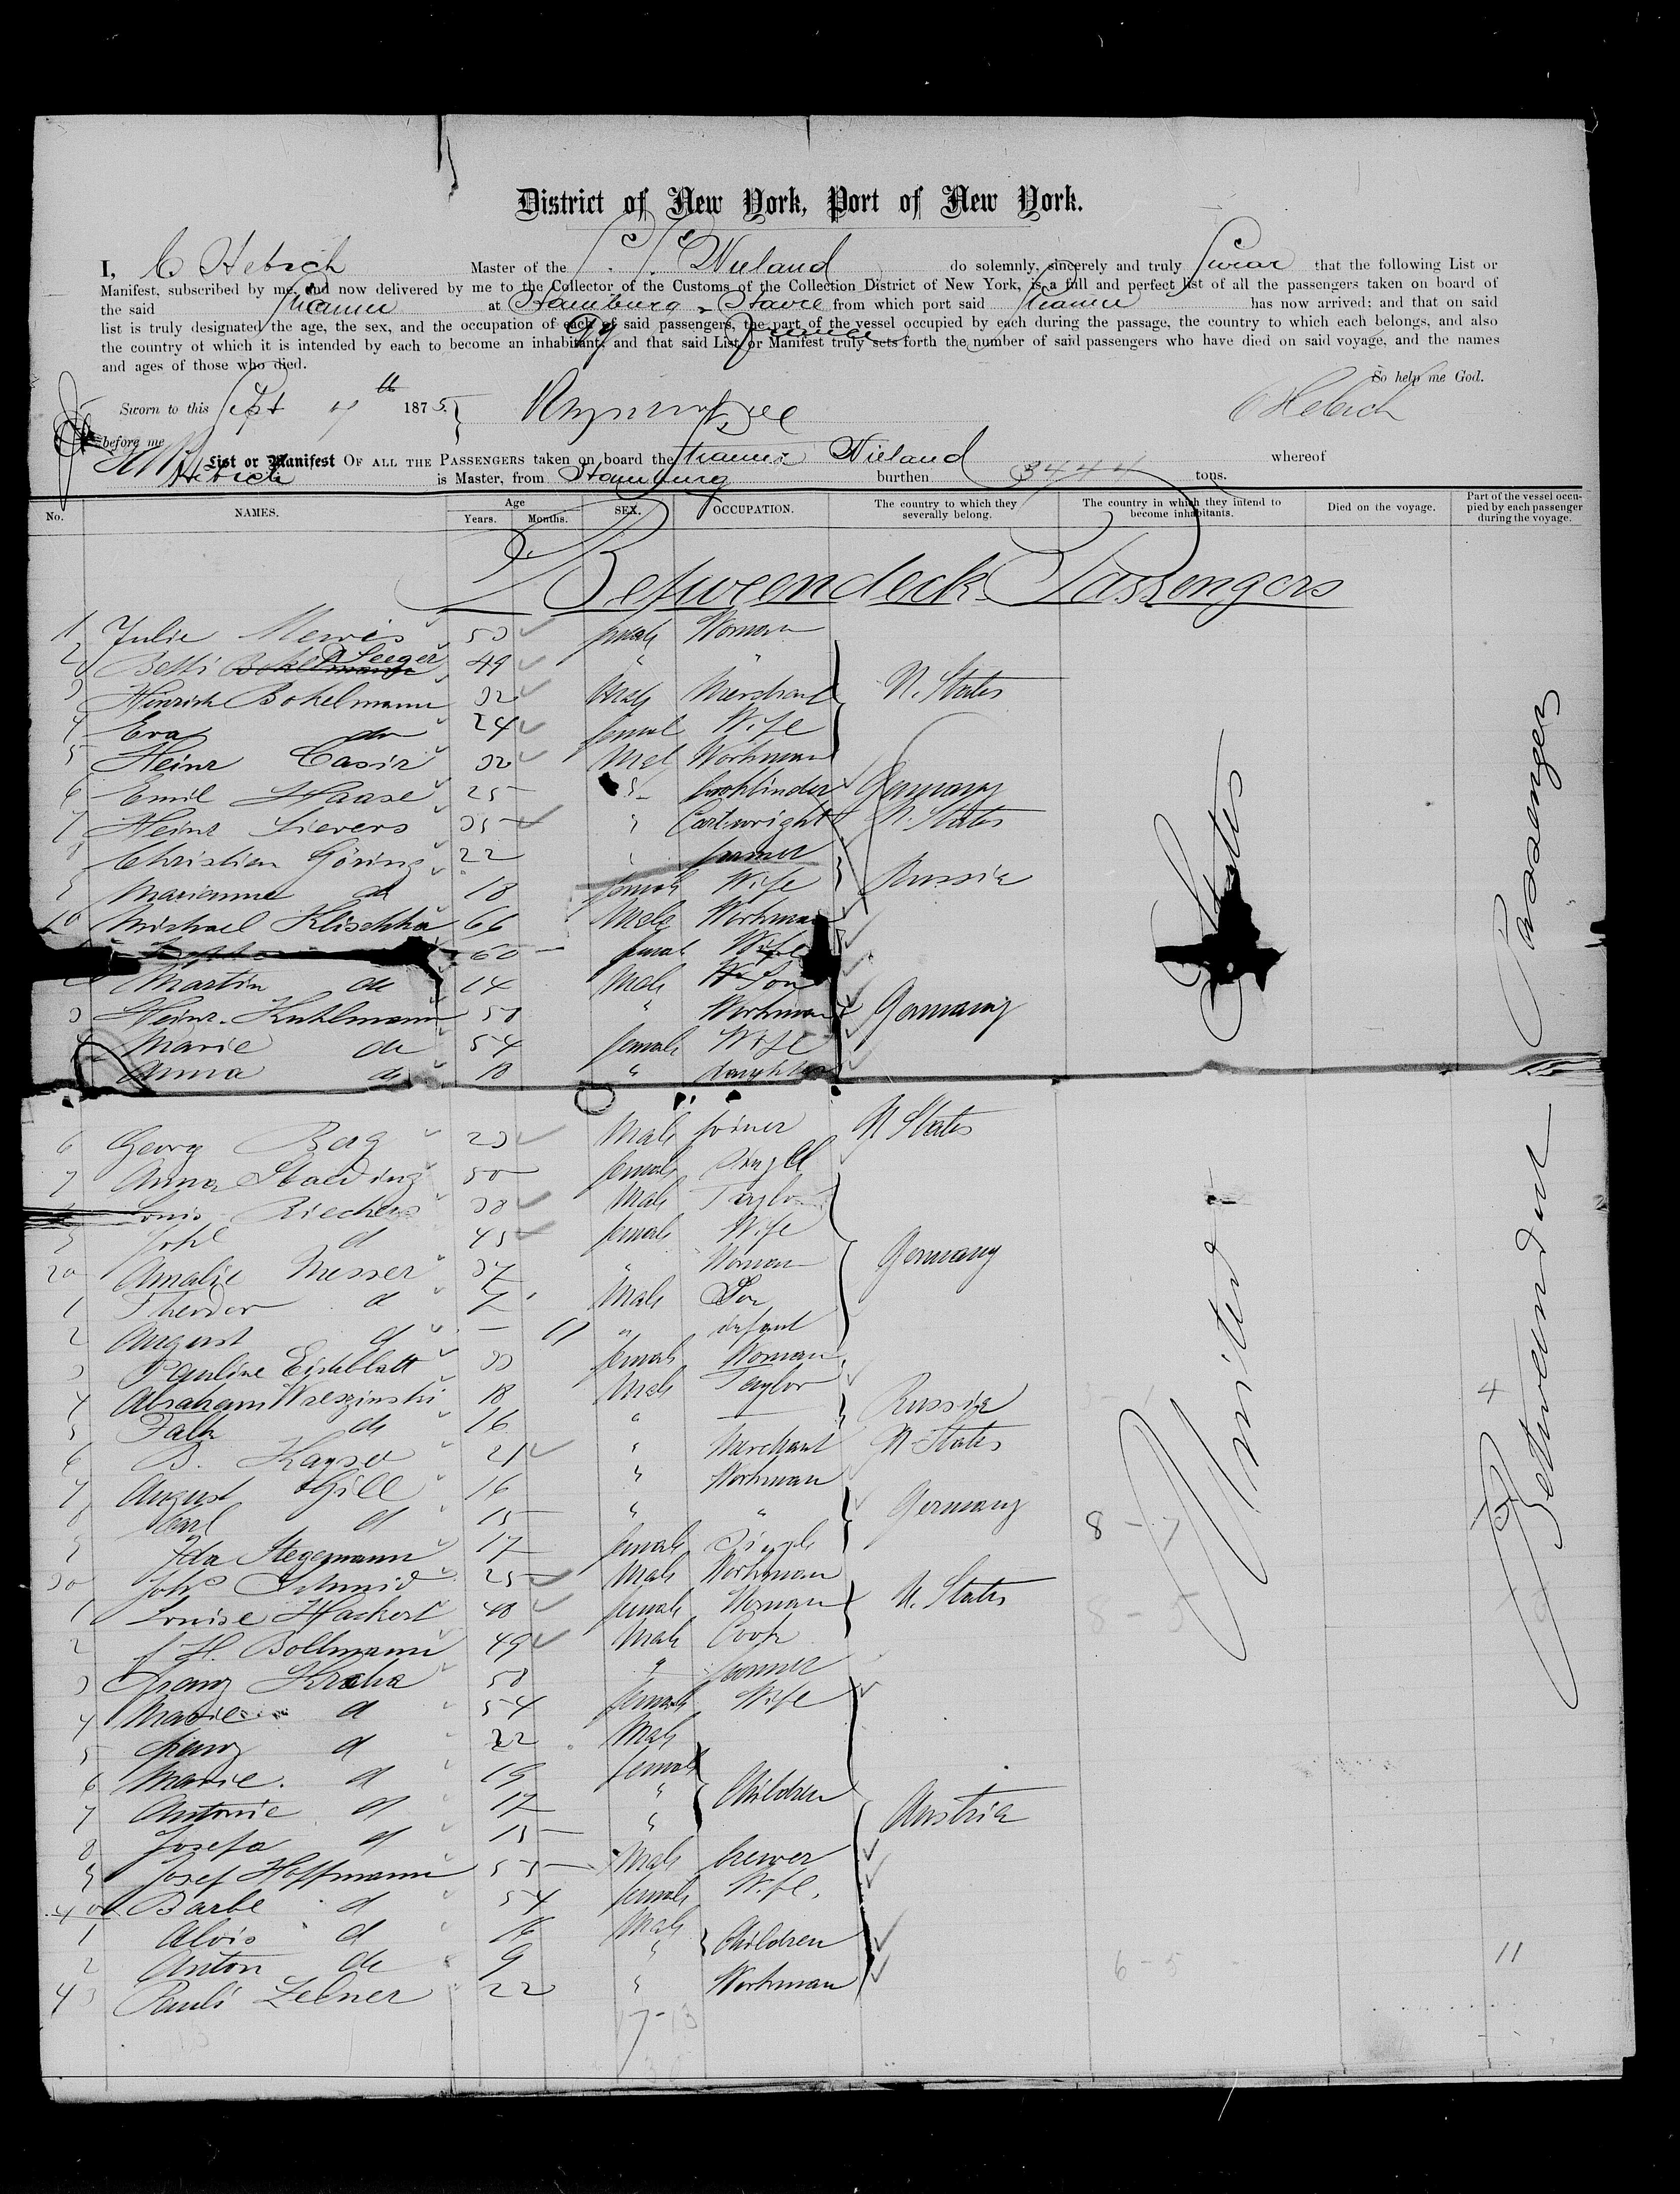 District of New York, Port of New York.
I, C Hebich Master of the S. S. Wieland do solemnly, sincerely and truly Swear that the following List or
Manifest, subscribed by me, and now delivered by me to the Collector of the Customs of the Collection District of New York, is a full and perfect list of all the passengers taken on board of
the said Steamer at Hamburg & Havre from which port said Steamer has now arrived; and that on said
list is truly designated the age, the sex, and the occupation of each of said passengers, the part of the vessel occupied by each during the passage, the country to which each belongs, and also
the country of which it is intended by each to become an inhabitant; and that said List or Manifest truly sets forth the number of said passengers who have died on said voyage, and the names
and ages of those who died.
So help me God.
Sworn to this Sept th 1875
C Hebich
before me
List or Manifest OF ALL THE PASSENGERS taken on board the Steamer Wieland whereof
Hebich is Master, from Hamburg burthen 3444 tons.
No. NAMES. Age Years. Months. SEX. OCCUPATION. The country to which they severally belong. The country in which they intend to become inhabitants. Died on the voyage. Part of the vessel occupied by each passenger during the voyage.
Betweendeck Passengers
1 Julie Mewis 53 female Woman
2 Betti Seeger 49 " "
3 Hinrich Bokelmann 32 Male Merchant U. States
4 Eva do 24 female Wife
5 Heinr Casir 32 Male Workman
6 Emil Haase 25 " bookbinder Germany
7 Heinr Sievers 35 " Cartwright U. States
8 Christian Göring 22 " farmer
9 Marianne do 18 female Wife Russia
10 Michael Klischka 66 Male Workman
60 female Wife
Martin do 14 Male Son
3 Heinr. Kuhlmann 58 " Workman Germany
Marie do 54 female Wife
Anna do 18 " daughter
6 Georg Berg 23 Male joiner U States
7 Anna 50 female Single
Louis Riechers 38 Male Taylor
9 d 45 female Wife
20 Amalie Messer 37 " Woman Germany
1 Theodor d 7 Male Son
2 August d — 11 " infant
3 Pauline Eisleblatt 33 female Woman
4 Abraham Wreszinski 18 Male Taylor
5 Falk do 16 " — Russia
6 B. Kayser 21 " Merchant U States
7 August Gill 16 " Workman
8 Carl d 15 " " Germany
9 Ida Stegemann 17 female Single
30 Joh. Schmid 25 Male Workman
1 Louise Hackert 48 female Woman U. States
2 J H. Bollmann 49 Male Cook
3 Franz Kraka 58 " farmer
4 Marie d 54 female Wife
5 Franz d 22 Male
6 Marie d 19 female
7 Antonie d 17 " Children Austria
8 Josefa d 15 "
9 Josef Hoffmann 55 Male brewer
40 Barbe d 54 female Wife
1 Alois d 16 Male
2 Anton do 9 " Children
43 Pauli Zelner 22 " Workman
United States
Betweendeck Passengers
4
8 - 7
8 - 5
6 - 5
11
17-13